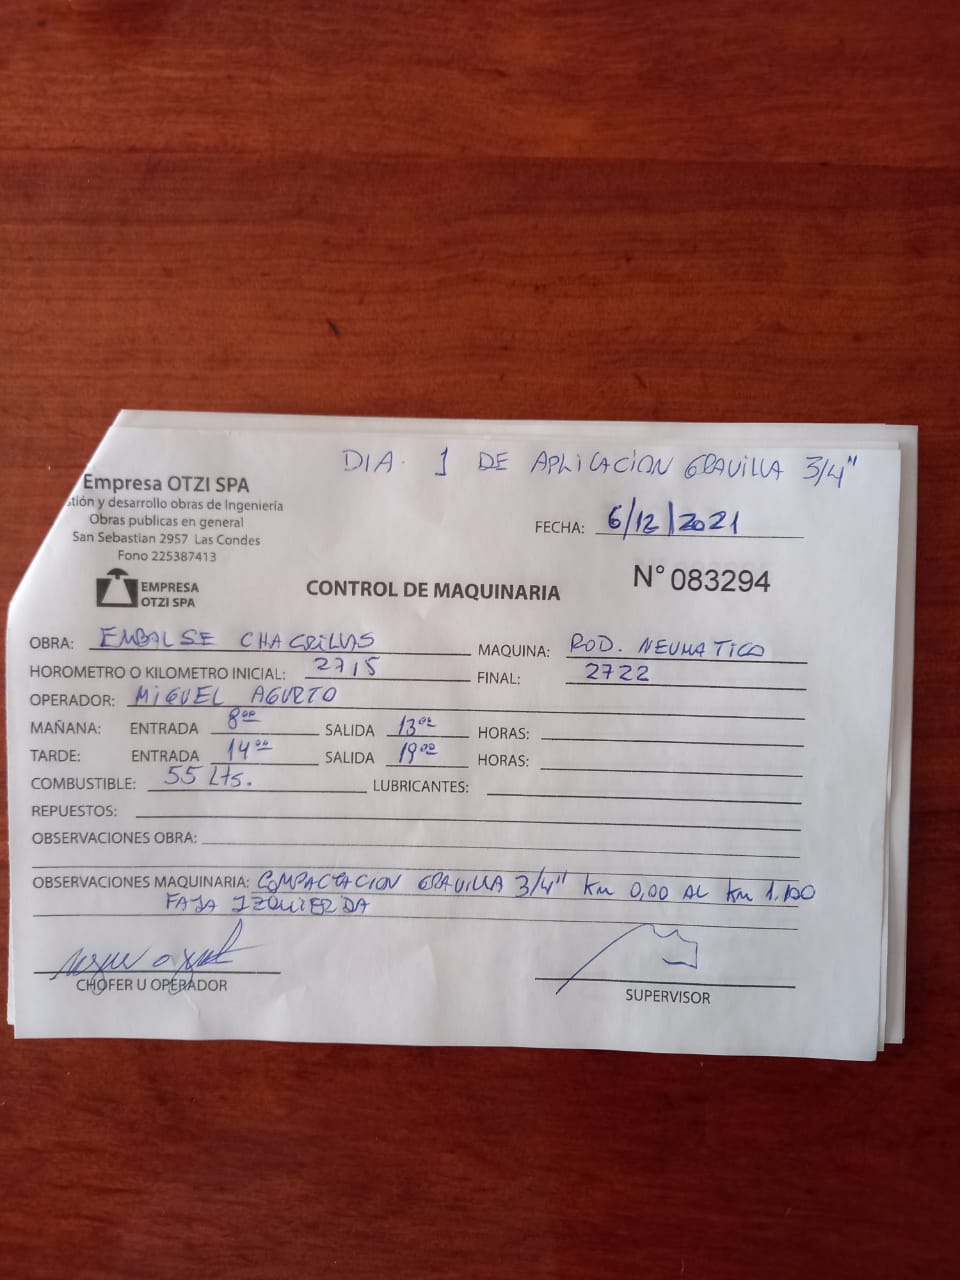 DIA. 1 DE APLICACION GRAVILLA 3/4"
Empresa OTZI SPA
tión y desarrollo obras de Ingeniería
Obras publicas en general
San Sebastian 2957 Las Condes
Fono 225387413
FECHA: 6/12/2021
EMPRESA
OTZI SPA
CONTROL DE MAQUINARIA
N° 083294
OBRA: EMBALSE CHACRILLAS MAQUINA: ROD. NEUMATICO
HOROMETRO O KILOMETRO INICIAL: 2715 FINAL: 2722
OPERADOR: MIGUEL AGURTO
MAÑANA: ENTRADA 8°° SALIDA 13°° HORAS:
TARDE: ENTRADA 14°° SALIDA 19°° HORAS:
COMBUSTIBLE: 55 Lts. LUBRICANTES:
REPUESTOS:
OBSERVACIONES OBRA:
OBSERVACIONES MAQUINARIA: COMPACTACION GRAVILLA 3/4" Km 0,00 AL Km
FAJA IZQUIERDA
CHOFER U OPERADOR
SUPERVISOR